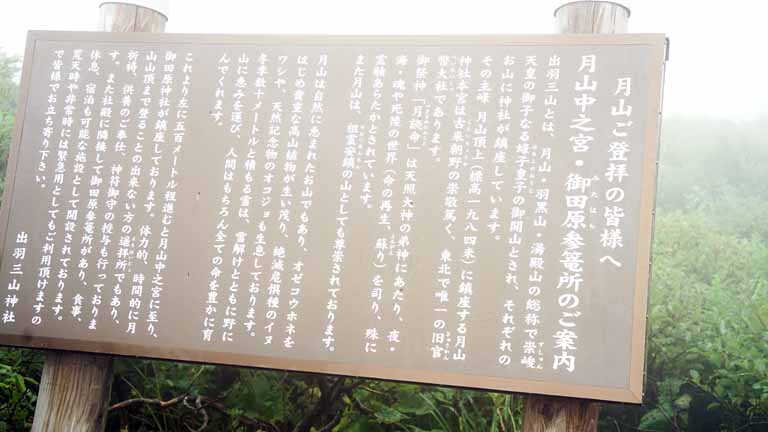 月山ご登拝の皆様へ
月山中之宮・御田原参篭所のご案内
みたはら
出羽三山とは、月山・羽黒山・湯殿山の総称で崇峻
すしゅん
天皇の御子なる蜂子皇子の御開山とされ、それぞれの
お山に神社が鎮座しています。
その主峰、月山頂上(標高一九八四米)に鎮座する月山
神社本宮は古来朝野の崇敬篤く、東北で唯一の旧官
幣大社であります。
御祭神「月読命」は天照大神の弟神にあたり、夜・
海・魂や死後の世界(命の再生、蘇り)を司り、殊に
霊験あらたかとされています。
また月山は、祖霊安鎮の山としても尊崇されております。
月山は自然に恵まれたお山でもあり、オゼコウホネを
はじめ貴重な高山植物が生い茂り、絶滅危惧種のイヌ
ワシや、天然記念物のオコジョも生息しております。
冬季数十メートルと積もる雪は、雪解けとともに野に
山に恵みを運び、人間はもちろん全ての命を豊かに育
んでくれます。
これより左に五百メートル程進むと月山中之宮に至り、
御田原神社が鎮座しております。体力的、時間的に月
山山頂まで登ることの出来ない方の遥拝所でもあり、
祈祷、供養のご奉仕、神符御守の授与も行っておりま
す。また社殿に隣接して御田原参篭所があり、食事、
休憩、宿泊も可能な施設として開設されております。
荒天時や非常時には緊急用としてもご利用頂けますの
で皆様でお立ち寄り下さい。
出羽三山神社